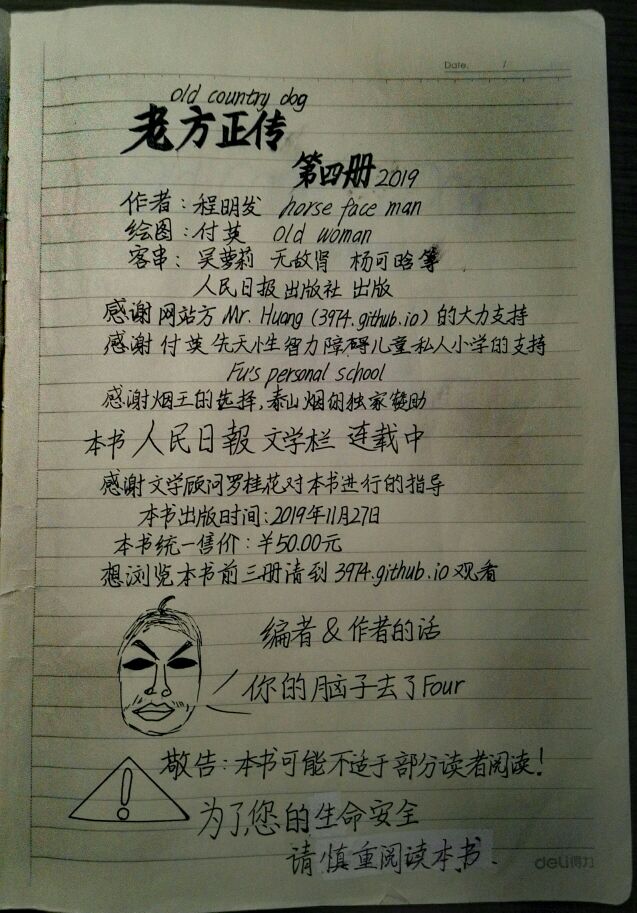 Date. /
old country dog
老方正传
第四册 2019
作者：程明发 horse face man
绘图：付英 old woman
客串：吴萝莉 无敌肾 杨可晗等
人民日报出版社 出版
感谢网站方 Mr. Huang (3974.github.io) 的大力支持
感谢付英先天性智力障碍儿童私人小学的支持
Fu's personal school
感谢烟王的选择,泰山烟的独家赞助
本书人民日報文学栏 连载中
感谢文学顾问罗桂花对本书进行的指导
本书出版时间:2019年11月27日
本书统一售价:￥50.00元
想浏览本书前三册请到 3974.github.io 观看
编者&作者的话
你的脑子去了Four
!
敬告:本书可能不适于部分读者阅读!
为了您的生命安全
请慎重阅读本书.
deli得力